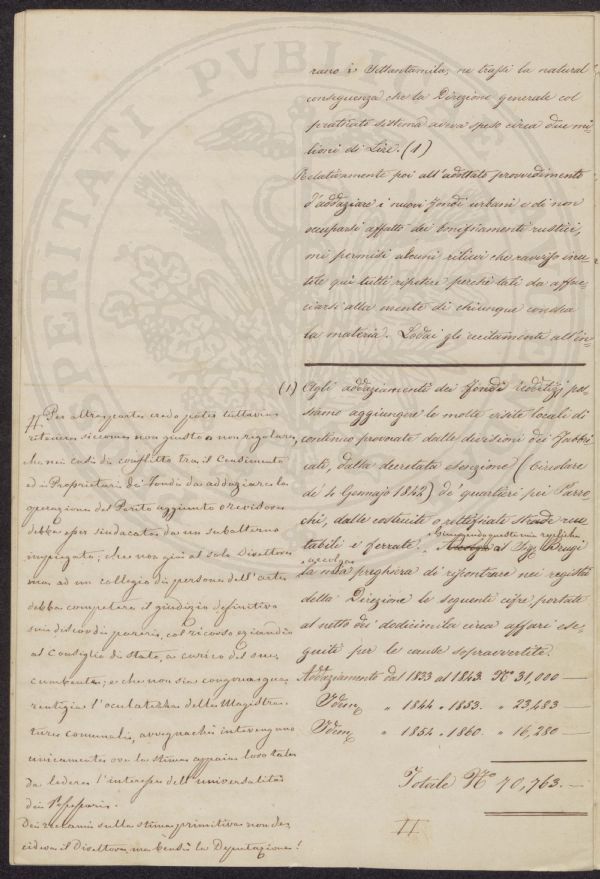 rano i Settantamila, ne trassi la natural
conseguenza che la Direzione generale col
praticato sistema aveva speso circa due mi-
lioni di Lire. (1)
Relativamente poi all'adottato provvedimento
d'addaziare i nuovi fondi urbani e di non
occuparsi affatto dei bonificamenti rustici,
mi permisi alcuni rilievi che ravviso inu-
tile qui tutti ripetere perchè tali da affac-
ciarsi alla mente di chiunque conosca
la materia. Lodai gli eccitamenti all'in-
(1) Agli addaziamenti dei fondi redditizj pos-
siamo aggiungere le molte visite locali di
continuo provocate dalle divisioni dei Fabbri-
cati, dalla decretata esenzione (Circolare
de' 4 Gennajo 1842) de' quartieri pei Parro-
chi, dalle costruite o rettificate strade ruo-
tabili e ferrate. al Sig. Bengi
la mia preghiera di riscontrare nei registri
della Direzione le seguenti cifre, portate
al netto di dodicimila circa affari ese-
guiti per le cause sopraavvertite.
Addaziamento dal 1833 al 1843. N.° 31,000 —
Idem " 1844 " 1853. " 23,483 —
Idem " 1854 " 1860. " 16,280 —
Totale N.° 70,763. —
II
Per altra parte credo poter tuttavia
ritenere siccome non giusto e non regolare,
che nei casi di conflitto tra il Censimento
ed i Proprietari dei fondi da addaziare la
operazione del Perito aggiunto o revisore
debba esser sindacata da un subalterno
impiegato, che non già al solo Direttore
ma ad un collegio di persone dell'arte
debba competere il giudizio definitivo
sui discordi pareri, col ricorso eziandio
al Consiglio di Stato, a carico del suc-
cumbente; e che non sia congrua gua-
rentigia l'oculatezza della Magistra-
tura comunale, avvegnachè intervengano
unicamente ove la stima appaia loro tale
da ledere l'interesse dell'universalità
dei Possessori.
Dei reclami sulla stima primitiva non de-
cideva il Direttore, ma bensì la Deputazione!
PERICATI PVBLICAE